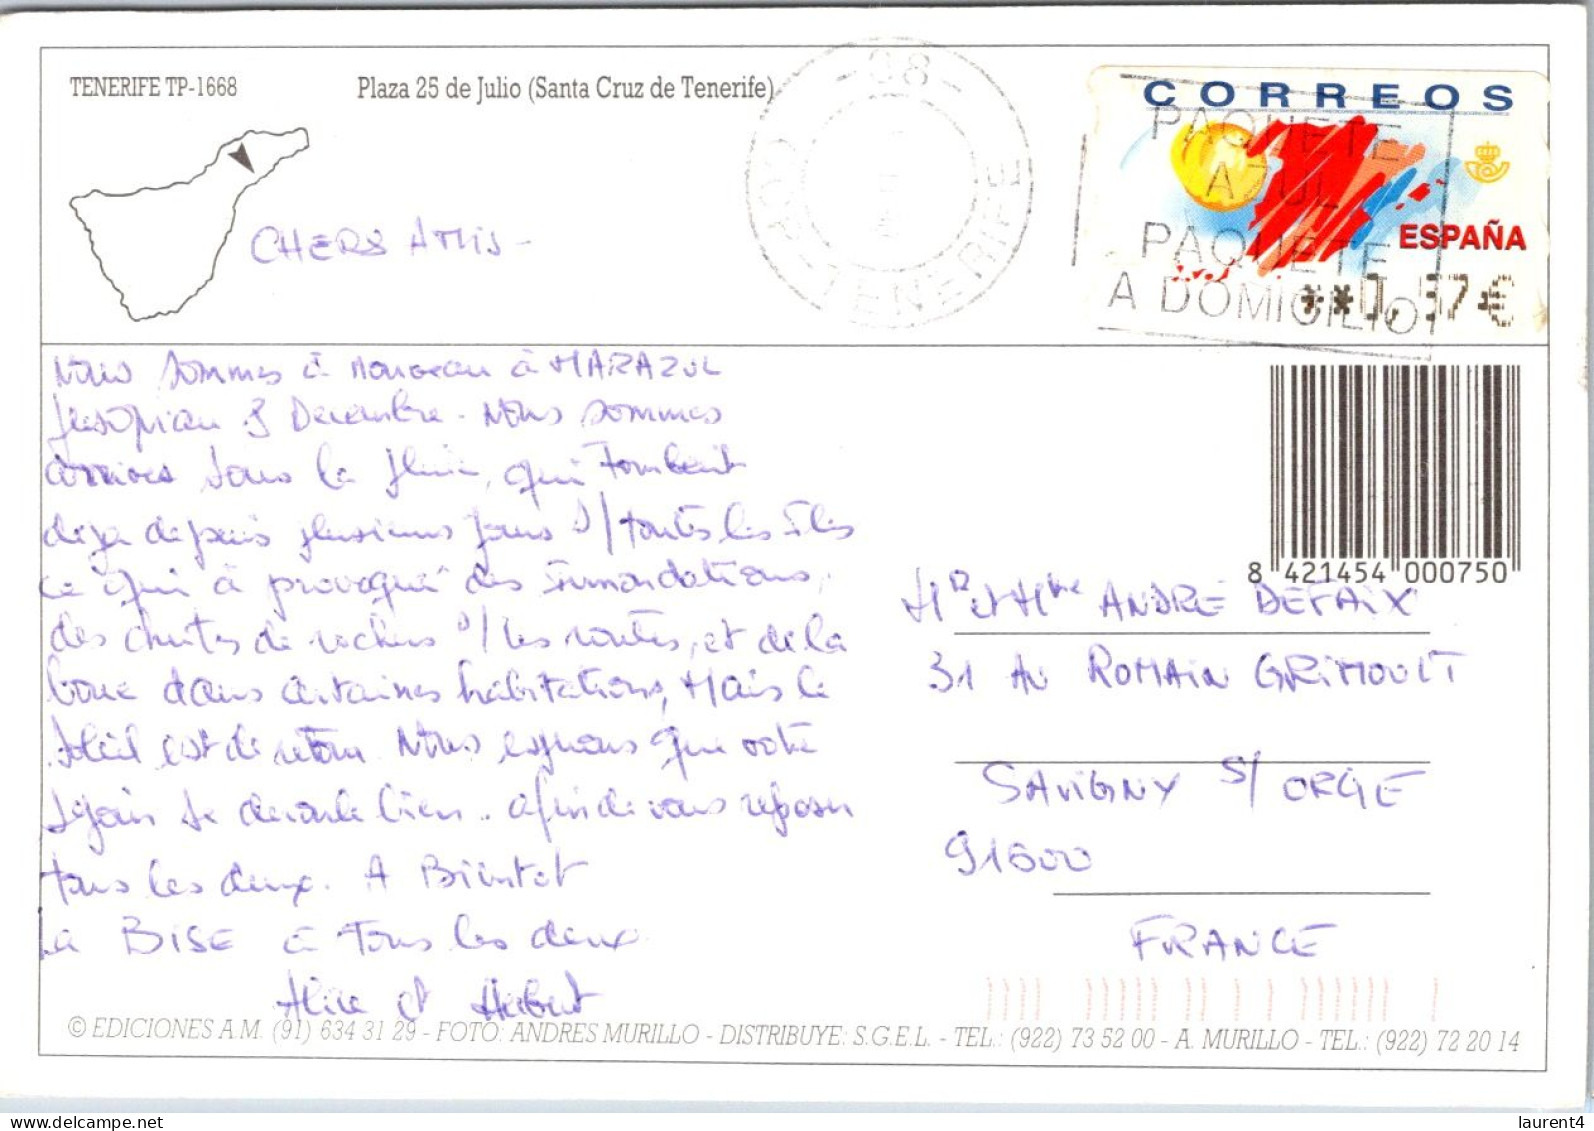 TENERIFE TP-1668
Plaza 25 de Julio (Santa Cruz de Tenerife)
-38-
TENERIFE
CORREOS
PAQUETE
AZUL
PAQUETE
A DOMICILIO
ESPAÑA
**0,57*€
CHERS AMIS -
Nous sommes à nouveau à MARAZUL
Jusqu'au 8 Decembre - Nous sommes
arrivés sous la pluie, qui tombait
deja depuis plusieurs jours s/ toutes les îles
ce qui à provoqué des innondations,
des chutes de rochers s/ les routes, et de la
boue dans certaines habitations, Mais le
Soleil est de retour. Nous esperons que votre
sejour se deroule bien. afin de vous reposer
tous les deux. A Bientot
La BISE à Tous les deux
Alice et Hubert
8 421454 000750
Mr et Mme ANDRE DEFAIX
31 AV ROMAIN GRIMOULT
SAVIGNY S/ ORGE
91600
FRANCE
© EDICIONES A.M. (91) 634 31 29 - FOTO: ANDRES MURILLO - DISTRIBUYE: S.G.E.L. - TEL.: (922) 73 52 00 - A. MURILLO - TEL.: (922) 72 20 14
www.delcampe.net
laurent4